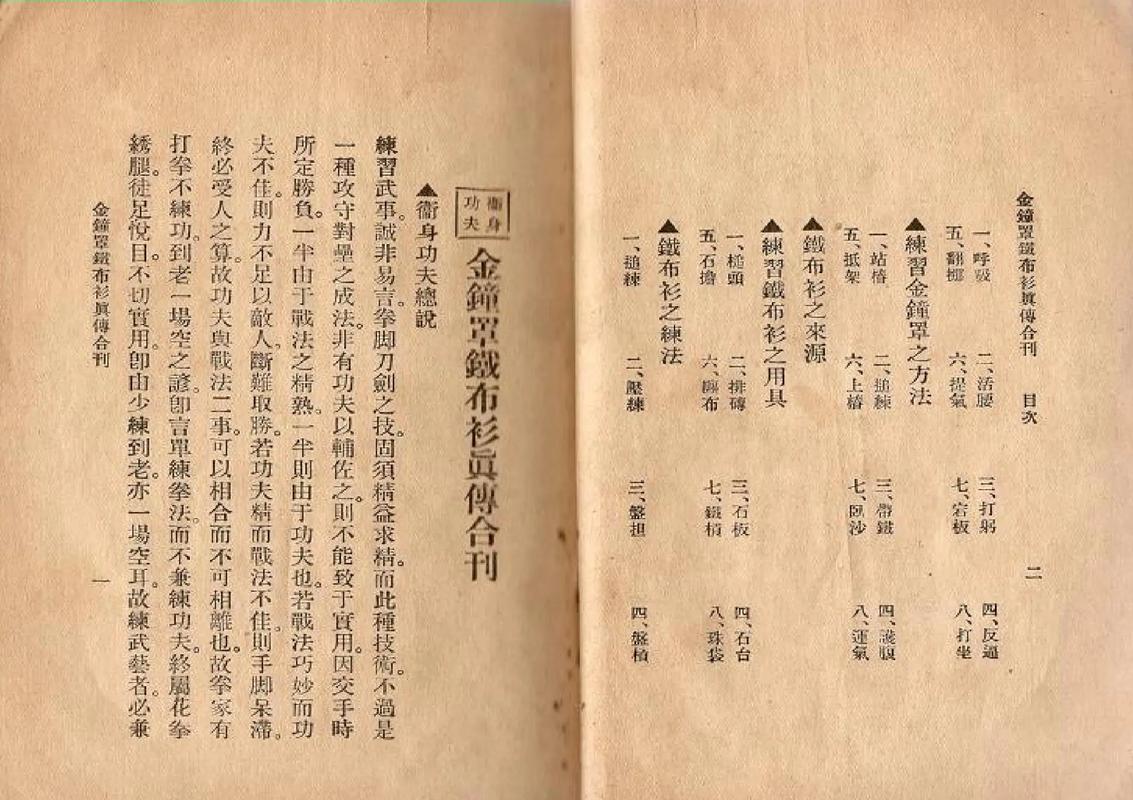 金鐘罩鐵布衫眞傳合刊 目次 二
一、呼吸 二、活腰 三、打躬 四、反逼
五、翻擲 六、提氣 七、宕板 八、打坐
▲練習金鐘罩之方法
一、站樁 二、搥練 三、帶鐵 四、護腹
五、抵架 六、上樁 七、臥沙 八、運氣
▲鐵布衫之來源
▲練習鐵布衫之用具
一、槌頭 二、排磚 三、石板 四、石台
五、石擔 六、布 七、鐵梢 八、珠袋
▲鐵布衫之練法
一、搥練 二、壓練 三、盤担 四、盤槓
衞身功夫 金鐘罩鐵布衫眞傳合刊
▲衞身功夫總說
練習武事。誠非易言。拳脚刀劍之技。固須精益求精。而此種技術。不過是
一種攻守對壘之成法。非有功夫以輔佐之。則不能致于實用。因交手時
所定勝負。一半由于戰法之精熟。一半則由于功夫也。若戰法巧妙而功
夫不佳。則力不足以敵人。斷難取勝。若功夫精而戰法不佳。則手脚呆滯。
終必受人之算。故功夫與戰法二事。可以相合而不可相離也。故拳家有
打拳不練功。到老一場空之諺。卽言單練拳法。而不兼練功夫。終屬花拳
綉腿。徒足悅目。不切實用。卽由少練到老。亦一場空耳。故練武藝者。必兼
金鐘罩鐵布衫眞傳合刊 一